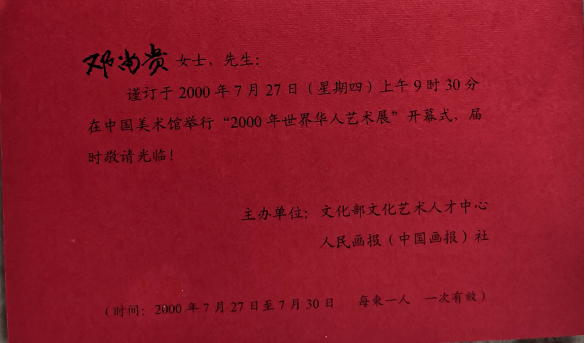 邓尚贵 女士、先生：
谨订于 2000 年 7 月 27 日（星期四）上午 9 时 30 分
在中国美术馆举行“2000 年世界华人艺术展”开幕式，届
时敬请光临！
主办单位：文化部文化艺术人才中心
人民画报（中国画报）社
（时间：2000 年 7 月 27 日至 7 月 30 日 每柬一人 一次有效）